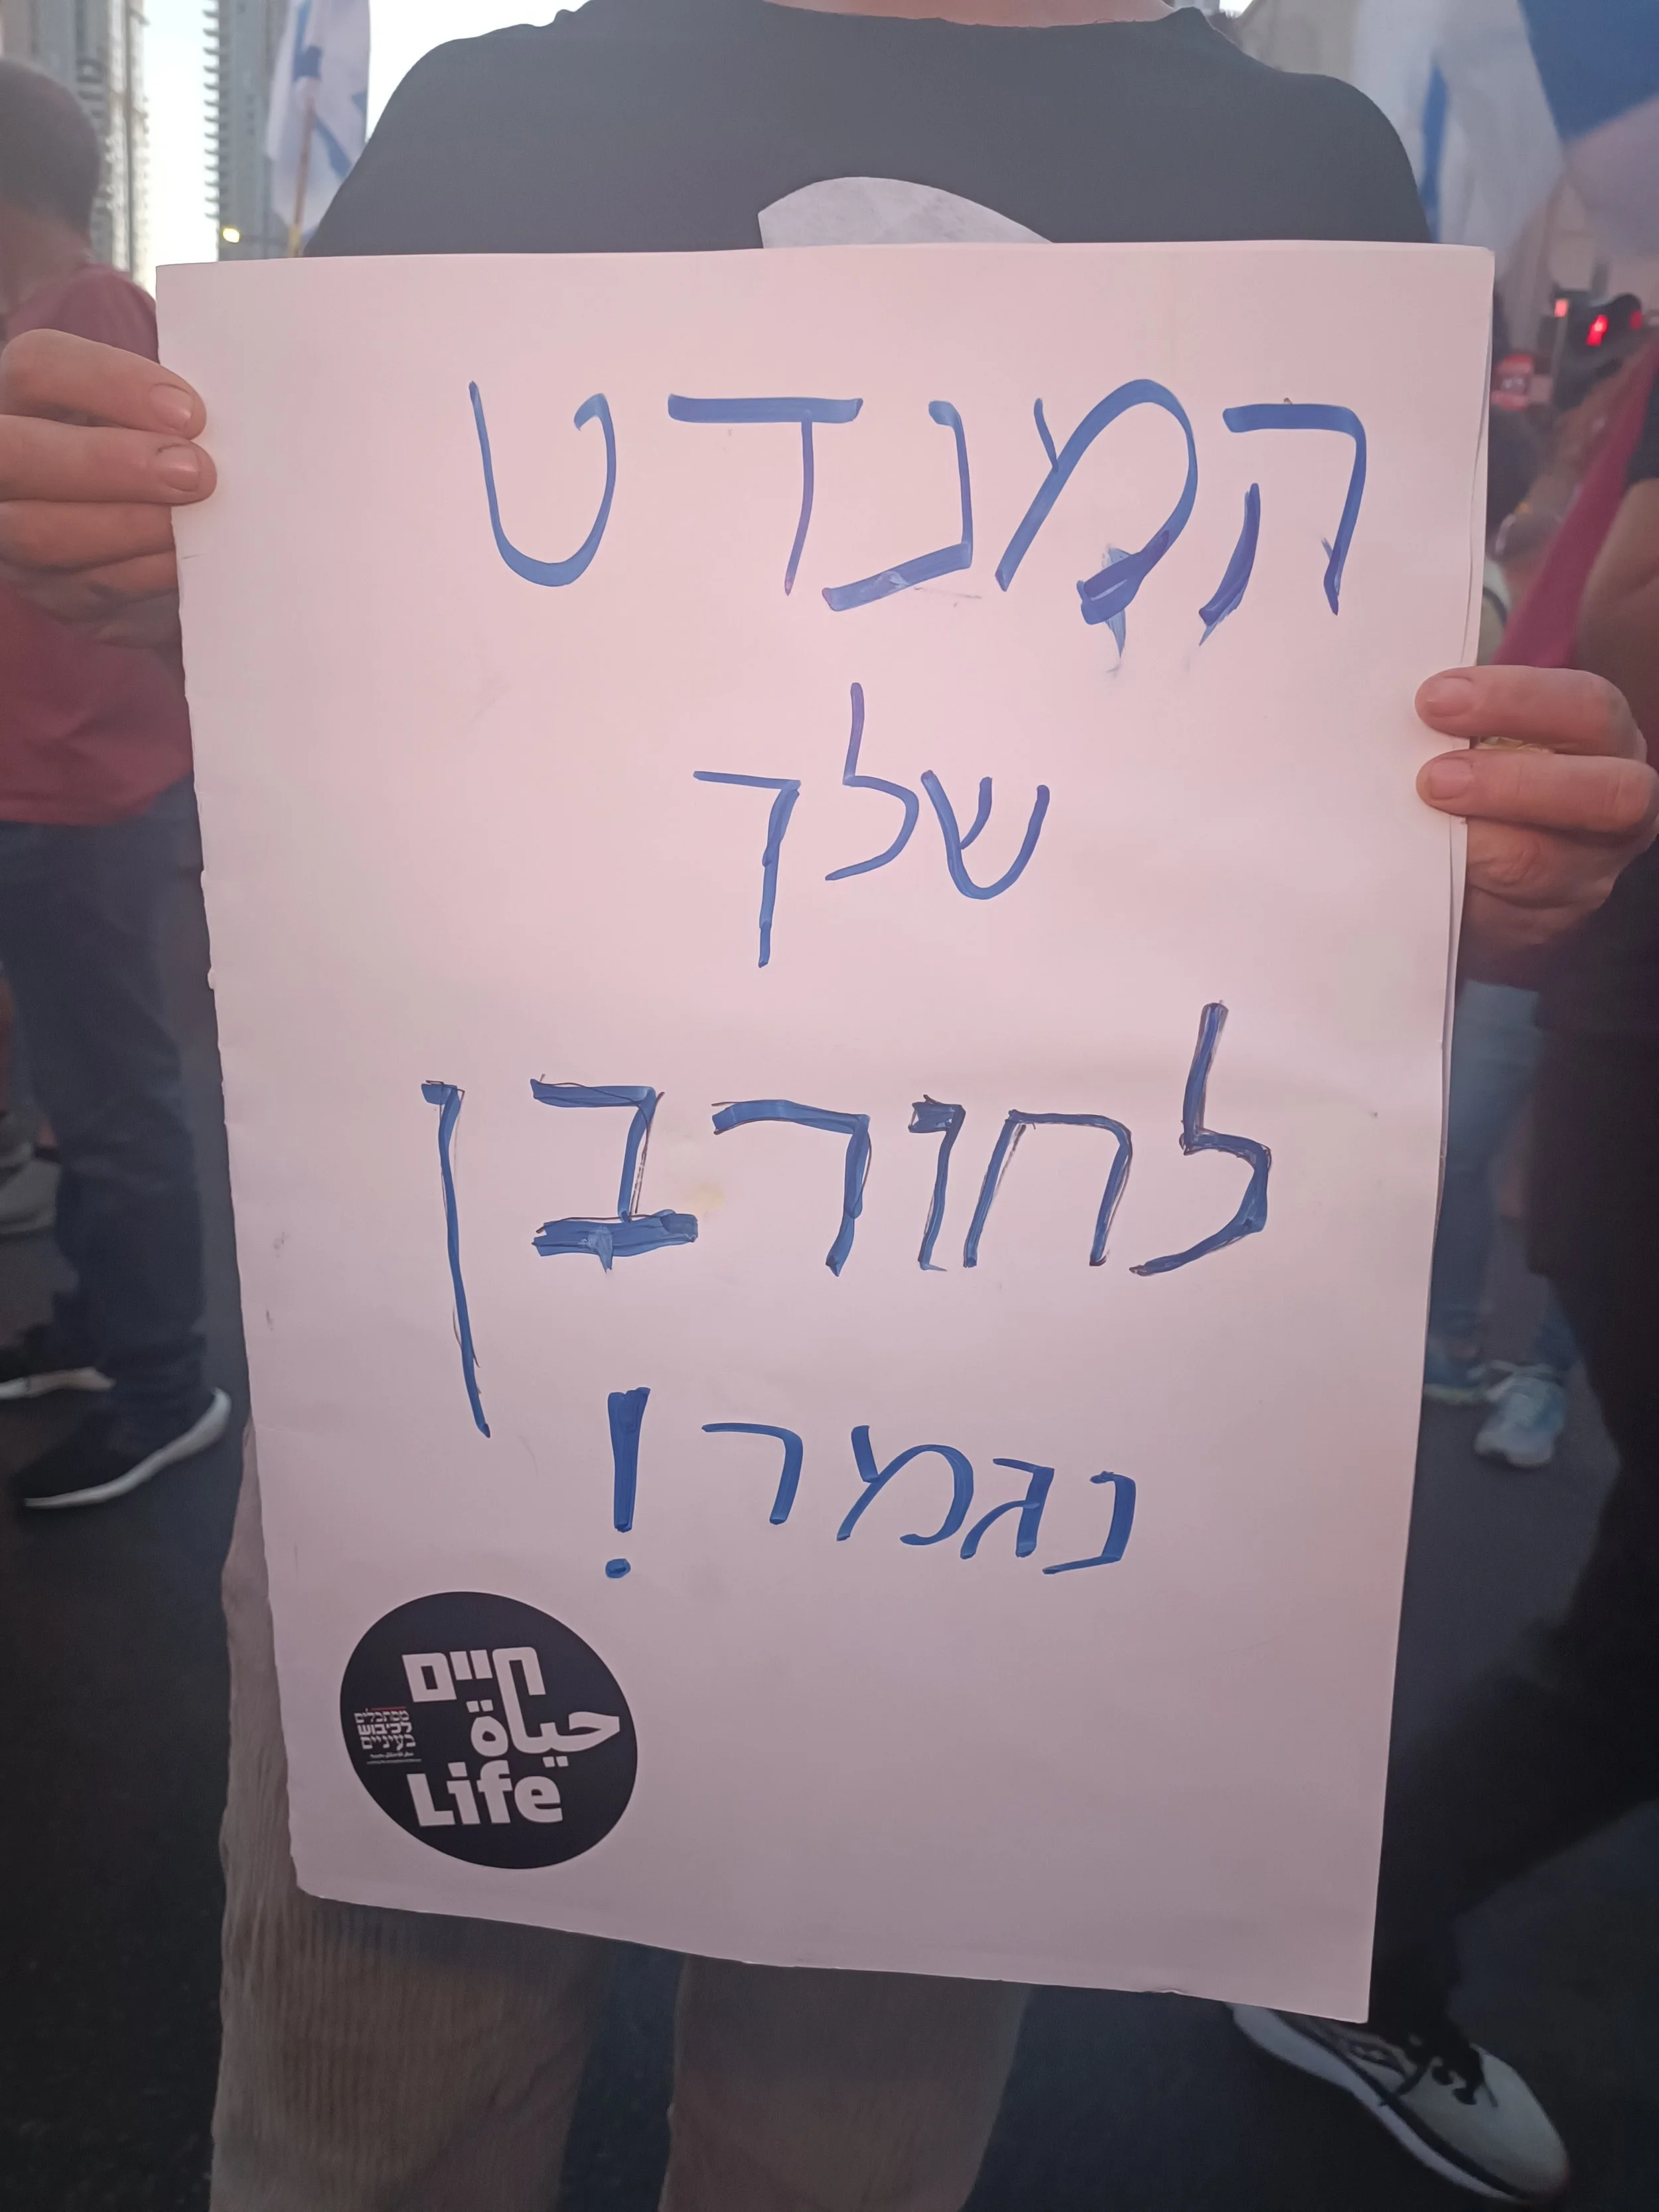 המנדט
שלך
לחורבן
נגמר!
חיים
حياة
Life
מסתכלים
לכיבוש
בעיניים